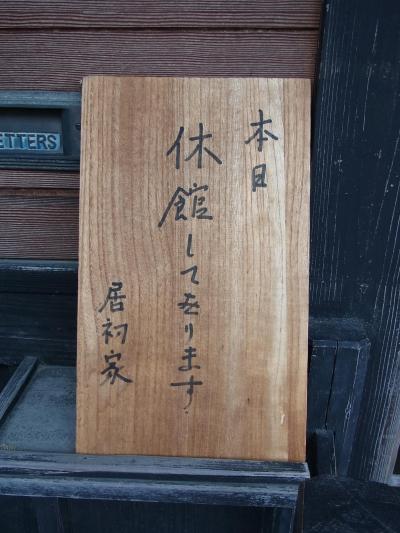 本日
休館して在ります
居初家
ETTERS